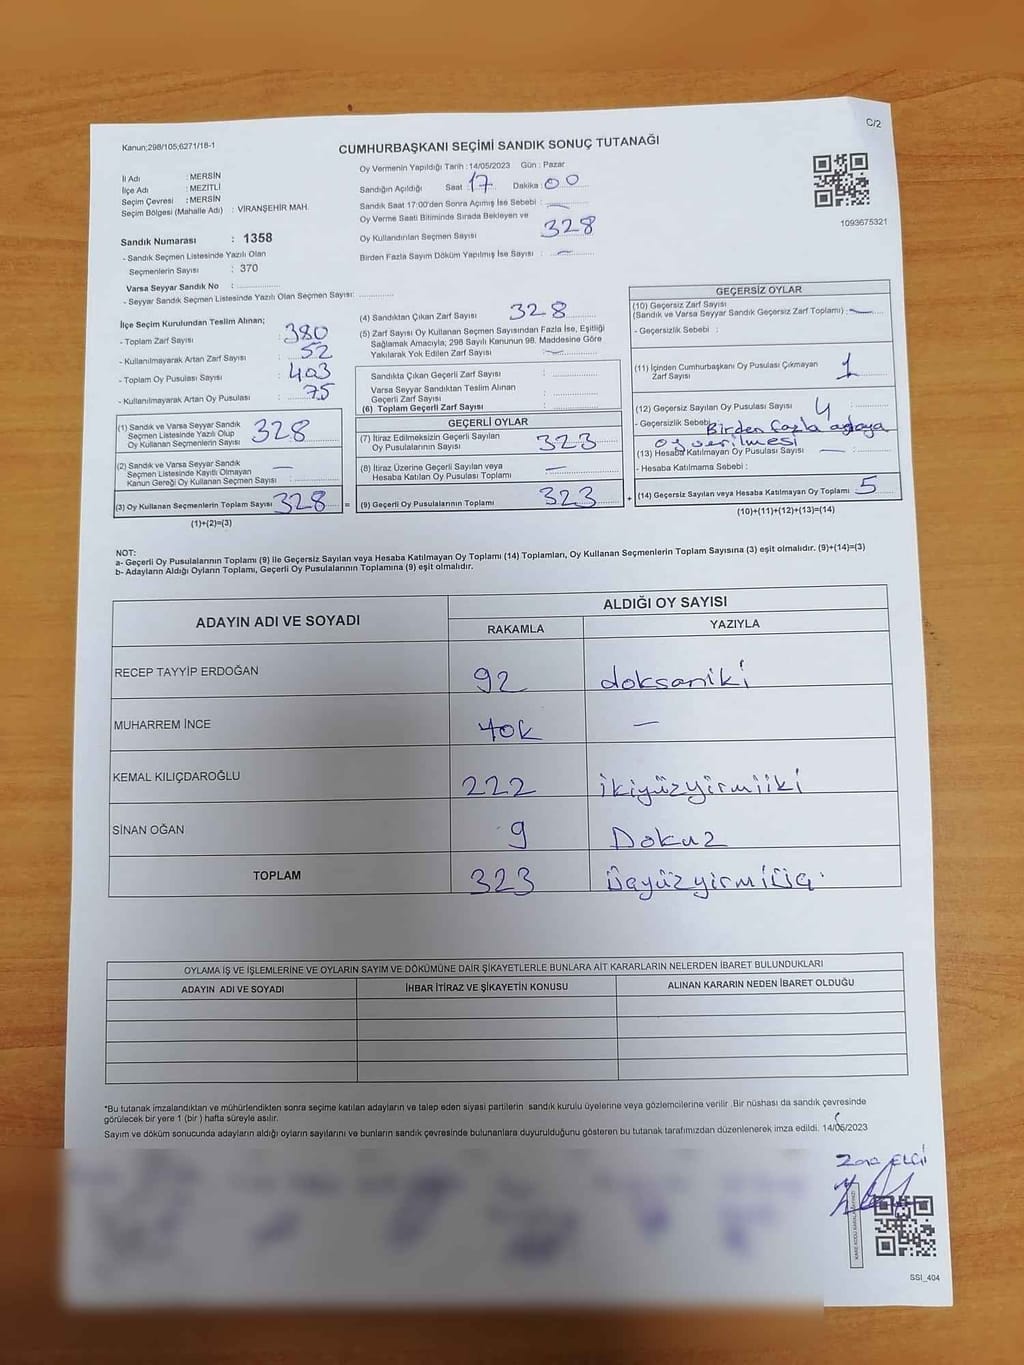 C/2
Kanun;298/105;6271/18-1
CUMHURBAŞKANI SEÇİMİ SANDIK SONUÇ TUTANAĞI
İl Adı : MERSİN
İlçe Adı : MEZİTLİ
Seçim Çevresi : MERSİN
Seçim Bölgesi (Mahalle Adı) : VİRANŞEHİR MAH.
Sandık Numarası : 1358
- Sandık Seçmen Listesinde Yazılı Olan
Seçmenlerin Sayısı : 370
Varsa Seyyar Sandık No :
- Seyyar Sandık Seçmen Listesinde Yazılı Olan Seçmen Sayısı:
Oy Vermenin Yapıldığı Tarih : 14/05/2023 Gün : Pazar
Sandığın Açıldığı Saat : 17 Dakika : 00
Sandık Saat 17:00'den Sonra Açımış İse Sebebi : —
Oy Verme Saati Bitiminde Sırada Bekleyen ve
Oy Kullandırılan Seçmen Sayısı 328
Birden Fazla Sayım Döküm Yapılmış İse Sayısı : —
1093675321
İlçe Seçim Kurulundan Teslim Alınan;
- Toplam Zarf Sayısı : 380
- Kullanılmayarak Artan Zarf Sayısı : 52
- Toplam Oy Pusulası Sayısı : 403
- Kullanılmayarak Artan Oy Pusulası : 75
(1) Sandık ve Varsa Seyyar Sandık
Seçmen Listesinde Yazılı Olup
Oy Kullanan Seçmenlerin Sayısı 328
(2) Sandık ve Varsa Seyyar Sandık
Seçmen Listesinde Kayıtlı Olmayan
Kanun Gereği Oy Kullanan Seçmen Sayısı : —
(3) Oy Kullanan Seçmenlerin Toplam Sayısı 328 =
(1)+(2)=(3)
(4) Sandıktan Çıkan Zarf Sayısı : 328
(5) Zarf Sayısı Oy Kullanan Seçmen Sayısından Fazla İse, Eşitliği
Sağlamak Amacıyla; 298 Sayılı Kanunun 98. Maddesine Göre
Yakılarak Yok Edilen Zarf Sayısı : —
Sandıkta Çıkan Geçerli Zarf Sayısı :
Varsa Seyyar Sandıktan Teslim Alınan
Geçerli Zarf Sayısı :
(6) Toplam Geçerli Zarf Sayısı :
GEÇERLİ OYLAR
(7) İtiraz Edilmeksizin Geçerli Sayılan
Oy Pusulalarının Sayısı : 323
(8) İtiraz Üzerine Geçerli Sayılan veya
Hesaba Katılan Oy Pusulası Toplamı : —
(9) Geçerli Oy Pusulalarının Toplamı 323 +
GEÇERSİZ OYLAR
(10) Geçersiz Zarf Sayısı
(Sandık ve Varsa Seyyar Sandık Geçersiz Zarf Toplamı) : —
- Geçersizlik Sebebi :
(11) İçinden Cumhurbaşkanı Oy Pusulası Çıkmayan
Zarf Sayısı 1
(12) Geçersiz Sayılan Oy Pusulası Sayısı 4 :
- Geçersizlik Sebebi Birden fazla adaya
oy verilmesi
(13) Hesaba Katılmayan Oy Pusulası Sayısı — :
- Hesaba Katılmama Sebebi :
(14) Geçersiz Sayılan veya Hesaba Katılmayan Oy Toplamı 5
(10)+(11)+(12)+(13)=(14)
NOT:
a- Geçerli Oy Pusulalarının Toplamı (9) ile Geçersiz Sayılan veya Hesaba Katılmayan Oy Toplamı (14) Toplamları, Oy Kullanan Seçmenlerin Toplam Sayısına (3) eşit olmalıdır. (9)+(14)=(3)
b- Adayların Aldığı Oyların Toplamı, Geçerli Oy Pusulalarının Toplamına (9) eşit olmalıdır.
ADAYIN ADI VE SOYADI
ALDIĞI OY SAYISI
RAKAMLA YAZIYLA
RECEP TAYYİP ERDOĞAN 92 doksaniki
MUHARREM İNCE yok —
KEMAL KILIÇDAROĞLU 222 ikiyüzyirmiiki
SİNAN OĞAN 9 Dokuz
TOPLAM 323 üçyüzyirmiüç
OYLAMA İŞ VE İŞLEMLERİNE VE OYLARIN SAYIM VE DÖKÜMÜNE DAİR ŞİKAYETLERLE BUNLARA AİT KARARLARIN NELERDEN İBARET BULUNDUKLARI
ADAYIN ADI VE SOYADI İHBAR İTİRAZ VE ŞİKAYETİN KONUSU ALINAN KARARIN NEDEN İBARET OLDUĞU
*Bu tutanak imzalandıktan ve mühürlendikten sonra seçime katılan adayların ve talep eden siyasi partilerin sandık kurulu üyelerine veya gözlemcilerine verilir .Bir nüshası da sandık çevresinde
görülecek bir yere 1 (bir ) hafta süreyle asılır.
Sayım ve döküm sonucunda adayların aldığı oyların sayılarını ve bunların sandık çevresinde bulunanlara duyurulduğunu gösteren bu tutanak tarafımızdan düzenlenerek imza edildi. 14/05/2023
ELÇİ
SSI_404